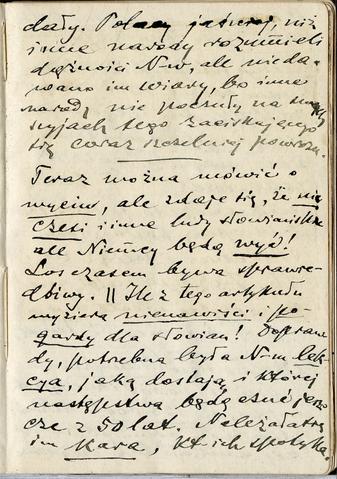 dały. Polacy jaśniej, niż
inne narody rozumieli
dążności N-w, ale nieda-
wano im wiary, bo inne
narody nie poczuły na swych
szyjach tego zaciskającego
się coraz szczelniej powrozu.
Teraz można mówić o
wyciu, ale zdaje się, że nie
Czesi i inne ludy słowiańskie
ale Niemcy będą wyć!
Los czasem bywa sprawie-
dliwy. || Ileż z tego artykułu
wyziera nienawiści i po-
gardy dla słowian! Dopraw-
dy, potrzebna była N-m lek-
cya, jaką dostają i której
następstwa będą czuć jesz-
cze z 50 lat. Należała się
im kara, kt. ich spotyka.